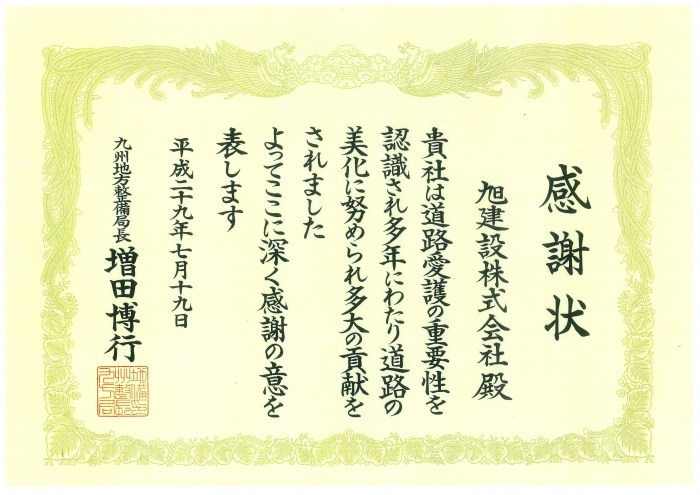 感謝状
旭建設株式会社殿
貴社は道路愛護の重要性を
認識され多年にわたり道路の
美化に努められ多大の貢献を
されました
よってここに深く感謝の意を
表します
平成二十九年七月十九日
九州地方整備局長 増田博行